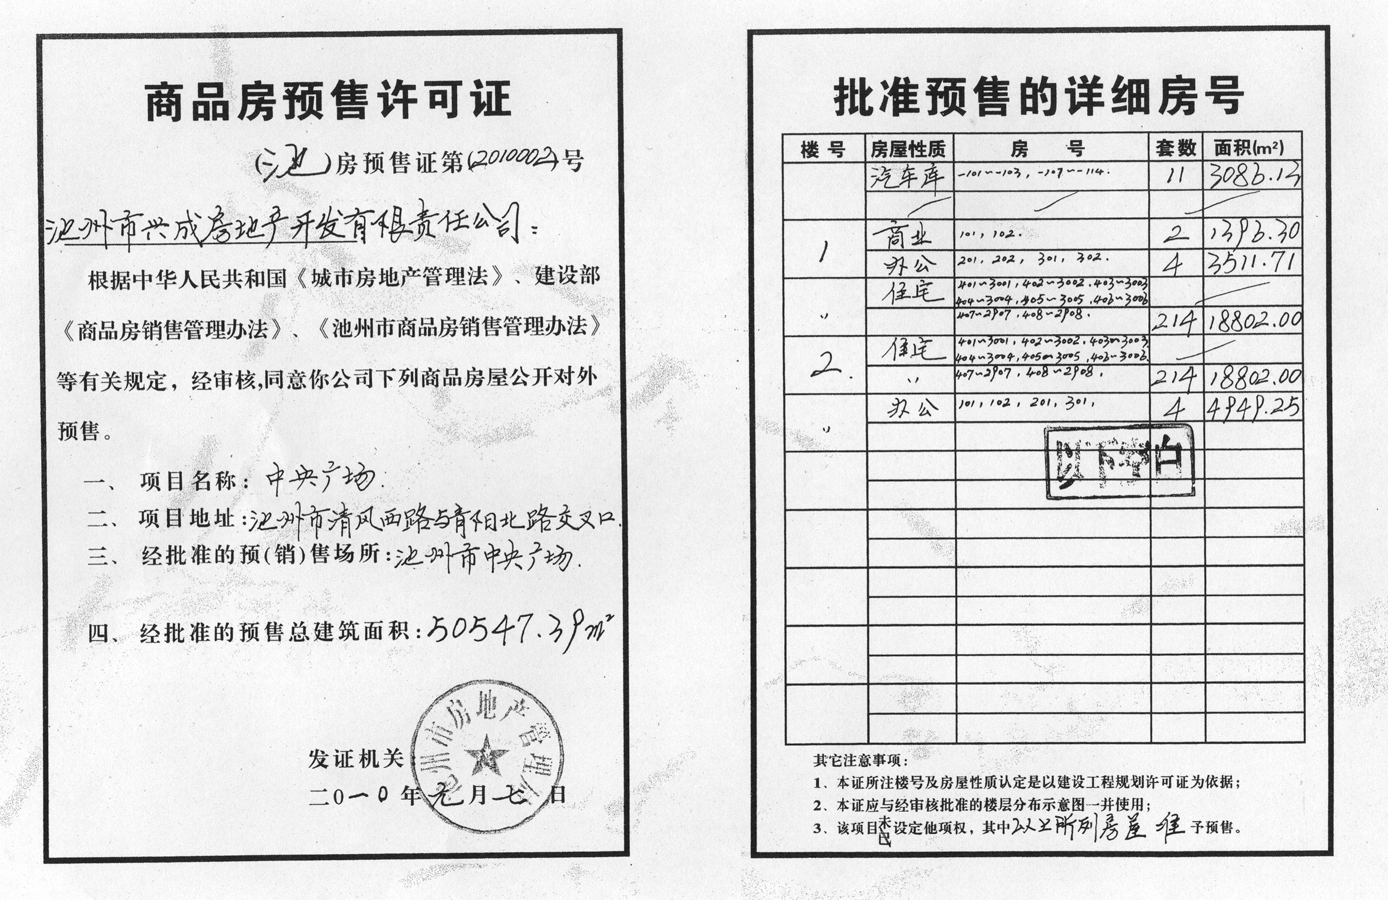 商品房预售许可证
(池)房预售证第(2010002)号
池州市兴成房地产开发有限责任公司：
根据中华人民共和国《城市房地产管理法》、建设部
《商品房销售管理办法》、《池州市商品房销售管理办法》
等有关规定，经审核,同意你公司下列商品房屋公开对外
预售。
一、项目名称：中央广场.
二、项目地址：池州市清风西路与青阳北路交叉口.
三、经批准的预(销)售场所：池州市中央广场.
四、经批准的预售总建筑面积：50547.39m²
发证机关：
池州市房地产管理局
二0一0年元月七日
批准预售的详细房号
楼号 房屋性质 房号 套数 面积(m²)
汽车库 -101~-103，-107~-114. 11 3086.13
1 商业 101，102. 2 1396.30
办公 201，202，301，302. 4 3511.71
住宅 401~3001，402~3002，403~3003
404~3004，405~3005，406~3006
〃 407~2907，408~2908. 214 18802.00
2. 住宅 401~3001，402~3002，403~3003
404~3004，405~3005，406~3006
〃 407~2907，408~2908. 214 18802.00
〃 办公 101，102，201，301， 4 4949.25
以下空白
其它注意事项：
1、本证所注楼号及房屋性质认定是以建设工程规划许可证为依据；
2、本证应与经审核批准的楼层分布示意图一并使用；
3、该项目未设定他项权，其中以上所列房屋准予预售。